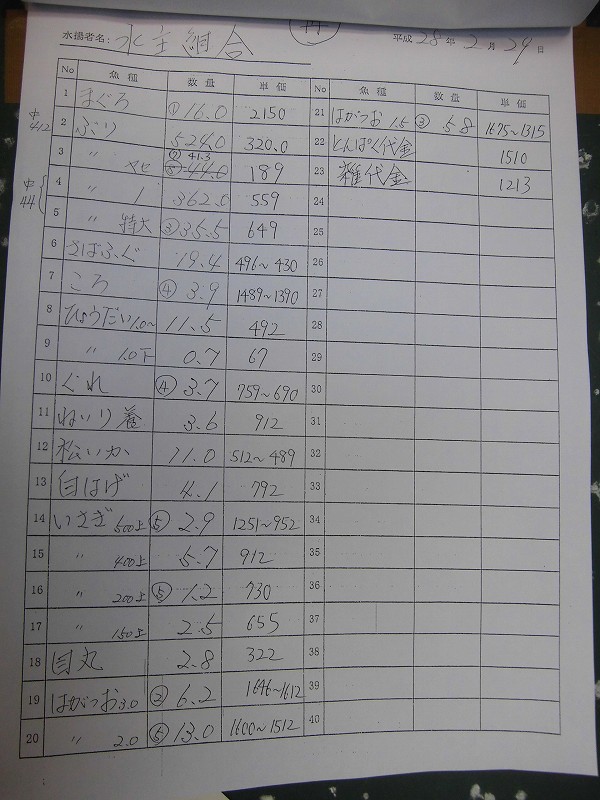 水揚者名: 水主組合 平成 28 年 2 月 29 日
No 魚種 数量 単価
1 まぐろ ① 16.0 2150
2 ぶり 524.0 320.0
3 〃 ヤセ ② 41.3 ③ 44.0 189
4 〃 1 362.0 559
5 〃 特大 ③ 35.5 649
6 さばふぐ 19.4 496~430
7 ころ ④ 3.9 1489~1390
8 ひょうだい 1.0~ 11.5 492
9 〃 1.0下 0.7 67
10 ぐれ ④ 3.7 759~690
11 ねいり 養 3.6 912
12 松いか 11.0 512~489
13 白はげ 4.1 792
14 いさぎ 500上 ⑤ 2.9 1251~952
15 〃 400上 5.7 912
16 〃 200上 ⑤ 1.2 730
17 〃 150上 2.5 655
18 目丸 2.8 322
19 はがつお 3.0 ② 6.2 1646~1612
20 〃 2.0 ⑤ 13.0 1600~1512
No 魚種 数量 単価
21 はがつお 1.5 ③ 5.8 1675~1315
22 とんぱく代金 1510
23 雑代金 1213
24
25
26
27
28
29
30
31
32
33
34
35
36
37
38
39
40
中412
中44